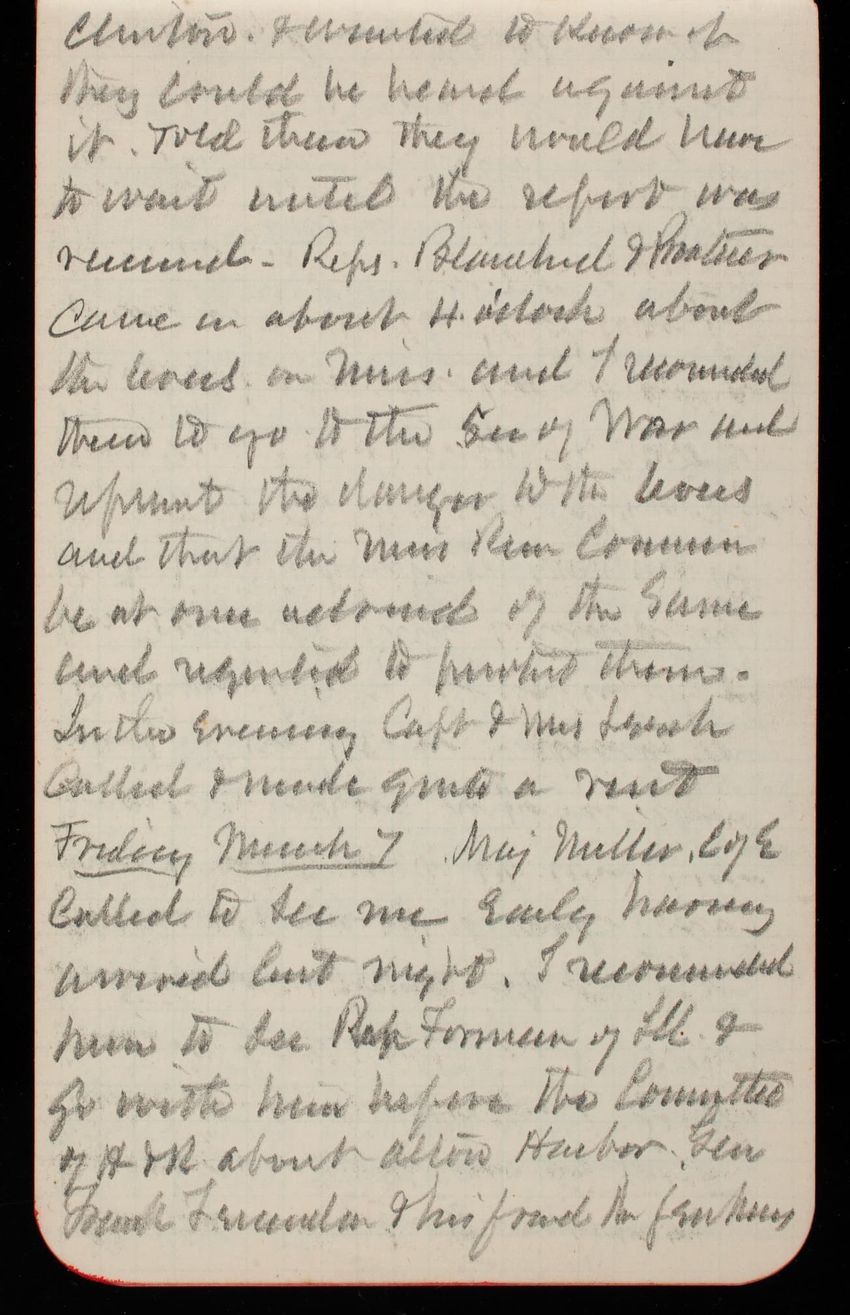 Clinton. & wanted to know if
they could be heard against
it. Told them they would have
to wait until the report was
received - Reps. Blanchard &
came in about 4 o'clock about
the levees on Miss. and I recommended
them to go to the Sec of War and
represent the danger to the levees
and that the Miss River Commission
be at once advised of the same
and requested to protect them.
In the evening Capt & Mrs
Called & made quite a visit
Friday March 7 Maj Miller, C of E
Called to see me Early having
arrived last night. I recommended
him to see Rep Forman of Ill. &
go with him before the Committee
of H & R about Alton Harbor. Gen
& his friend Mr Jenkins